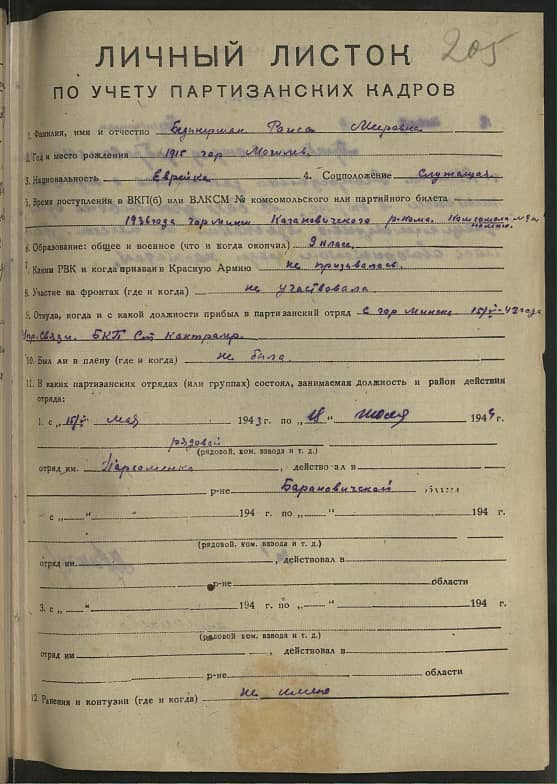 205
ЛИЧНЫЙ ЛИСТОК
ПО УЧЕТУ ПАРТИЗАНСКИХ КАДРОВ
1. Фамилия, имя и отчество Раиса Мееровна
2. Год и место рождения 1915 гор Могилев.
3. Национальность Еврейка 4. Соцположение Служащая.
5. Время поступления в ВКП(б) или ВЛКСМ № комсомольского или партийного билета
1936 года гор Минск Кагановичского р-кома. Комсомола
6. Образование: общее и военное (что и когда окончил) 9 класс.
7. Каким РВК и когда призван в Красную Армию не призывалась.
8. Участие на фронтах (где и когда) не участвовала
9. Откуда, когда и с какой должности прибыл в партизанский отряд с гор Минска 15/V-43 года
Упр. Связи. БКП Ст
10. Был ли в плену (где и когда) не была.
11. В каких партизанских отрядах (или группах) состоял, занимаемая должность и район действия
отряда:
1. с „15/V" мая 1943 г. по „18" июля 1944 г.
рядовой
(рядовой, ком. взвода и т. д.)
отряд им. Пархоменко, действовал в
р-не Барановичской области
с „ " 194 г. по „ " 194 г.
(рядовой, ком. взвода и т. д.)
отряд им. , действовал в
р-не области
3. с „ " 194 г. по „ " 194 г.
(рядовой ком. взвода и т. д.)
отряд им , действовал в
р-не области
12. Ранения и контузии (где и когда) не имела